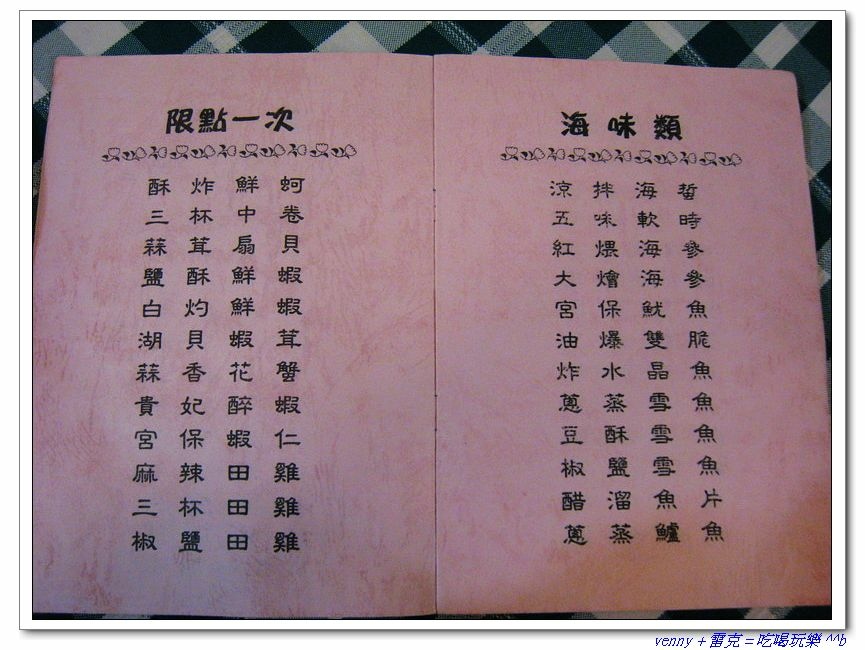 限點一次
酥炸鮮蚵
三杯中卷
蒜茸扇貝
鹽酥鮮蝦
白灼鮮蝦
湖貝蝦茸
蒜香花蟹
貴妃醉蝦
宮保蝦仁
麻辣田雞
三杯田雞
椒鹽田雞
海味類
涼拌海蜇
五味軟時
紅煨海參
大燴海參
宮保魷魚
油爆雙脆
炸水晶魚
蔥蒸雪魚
豆酥雪魚
椒鹽雪魚
醋溜魚片
蔥蒸鱸魚
venny + 雷克 = 吃喝玩樂 ^^b